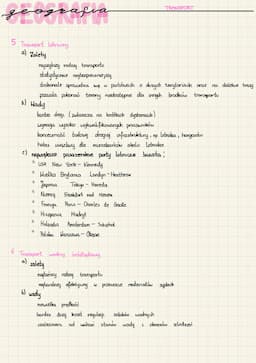 GEOGRAFIA
geografia
TRANSPORT
5 Transport lotniczy
a) Zalety
najszybszy rodzaj transportu
statystycznie najbezpieczniejszy
doskonale sprawdza się w podróżach o dużych terytoriach oraz na dalekie trasy
pozwala pokonać tereny niedostępne dla innych środków transportu
b) Wady
bardzo drogi (zwłaszcza na krótkich dystansach)
wymaga wysoko wykwalifikowanych pracowników
konieczność budowy drogiej infrastruktury, np lotniska, hangarów
hałas uciążliwy dla mieszkańców okolic lotniska
c) największe pasażerskie porty lotnicze świata:
USA New York - Kennedy
Wielka Brytania Londyn - Heathrow
Japonia Tokyo - Haneda
Niemcy Frankfurt nad Menem
Francja Paris - Charles de Gaulle
Hiszpania Madryt
Holandia Amsterdam - Schiphol
Polska Warszawa - Okęcie
6 Transport wodny śródlądowy
a) zalety
najtańszy rodzaj transportu
najbardziej efektywny w przewozie materiałów sypkich
b) wady
niewielka prędkość
bardzo duży koszt regulacji szlaków wodnych
uzależniony od wahań stanów wody i okresów zlodzeń